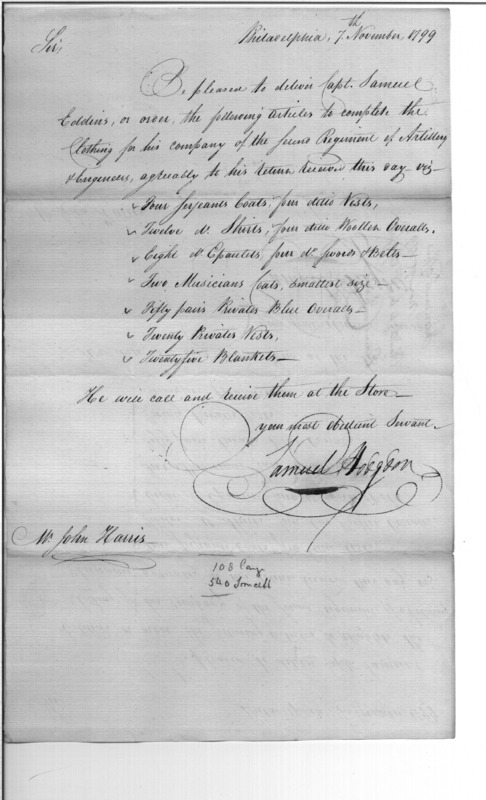 Philadelphia, 7th November 1799
Sir,
Be pleased to deliver Capt. Samuel
Eddins, or order, the following articles to complete the
Clothing for his company of the second Regiment of Artillery
& Engineers, agreeably to his Return received this day viz—
Four serjeants Coats, four ditto Vests,
Twelve do Shirts, four ditto Woollen Overalls,
Eight do Epaulets, four do swords & Belts—
Two Musicians Coats, smallest size—
Fifty pairs Privates Blue Overalls—
Twenty Privates Vests,
Twenty five Blankets—
He will call and receive them at the Store—
your most obedient Servant—
Samuel Hodgdon
Mr John Harris
108
540